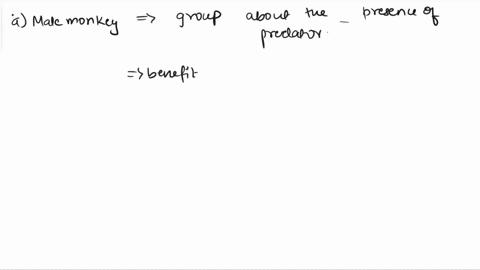 a) Male monkey => group about the _ presence of
predator.
=> benefit